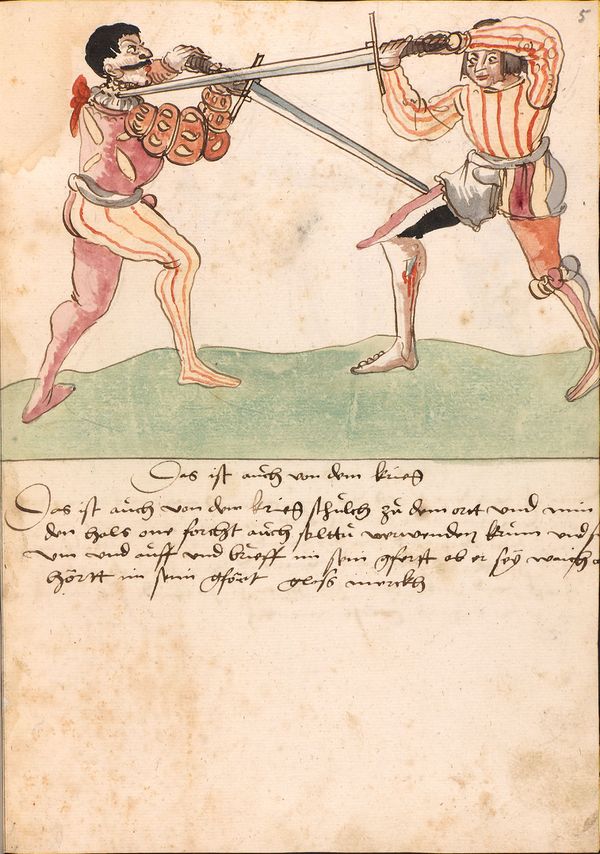 5
Das ist auch von dem krieg
Das ist auch von dem krieg schilch zů dem ort und nim
den hals one forcht auch soltu verwenden krum und
um und auff und brieff im sein gfertt ob er sÿ waich
hörtt im sein gfört gloss merckh